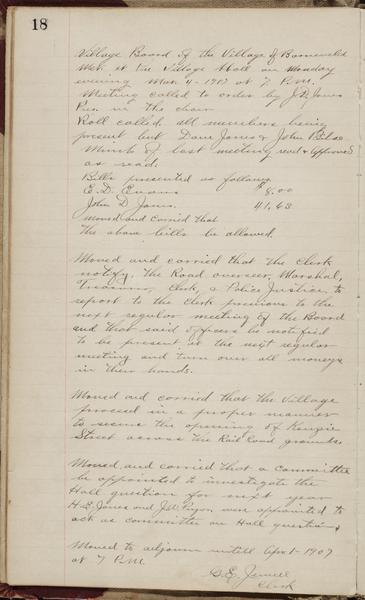 18
Village Board of the Village of Barneveld
Met at the Village Hall on Monday
evening Mar 4 - 1907 at 7 P.M.
Meeting called to order by J. D. Jones
Pres in the chair
Roll called all members being
present but Dave Jones & John
Minits of last meeting read & approved
as read.
Bills presented as follows
E. D. Evans $8.00
John D Jones. 41,63
moved and carried that
the above bills be allowed.
Moved and carried that the Clerk
notify, the Road overseer, Marshal,
Treasurer, Clerk, & Police Justice to
report to the Clerk previous to the
next regular meeting of the Board
and that said officers be notified
to be present at the next regular
meeting and turn over all moneys
in their hands.
Moved and carried that the Village
proceed in a proper manner
to secure the opening of Kenzie
Street across the Rail Road grounds.
Moved, and carried that a Committee
be appointed to investigate the
Hall question for next year
H. E. Jones and J. W. were appointed to
act as committee on Hall question
Moved to adjourn untill Apr 1 - 1907
at 7 P.M.
Clerk